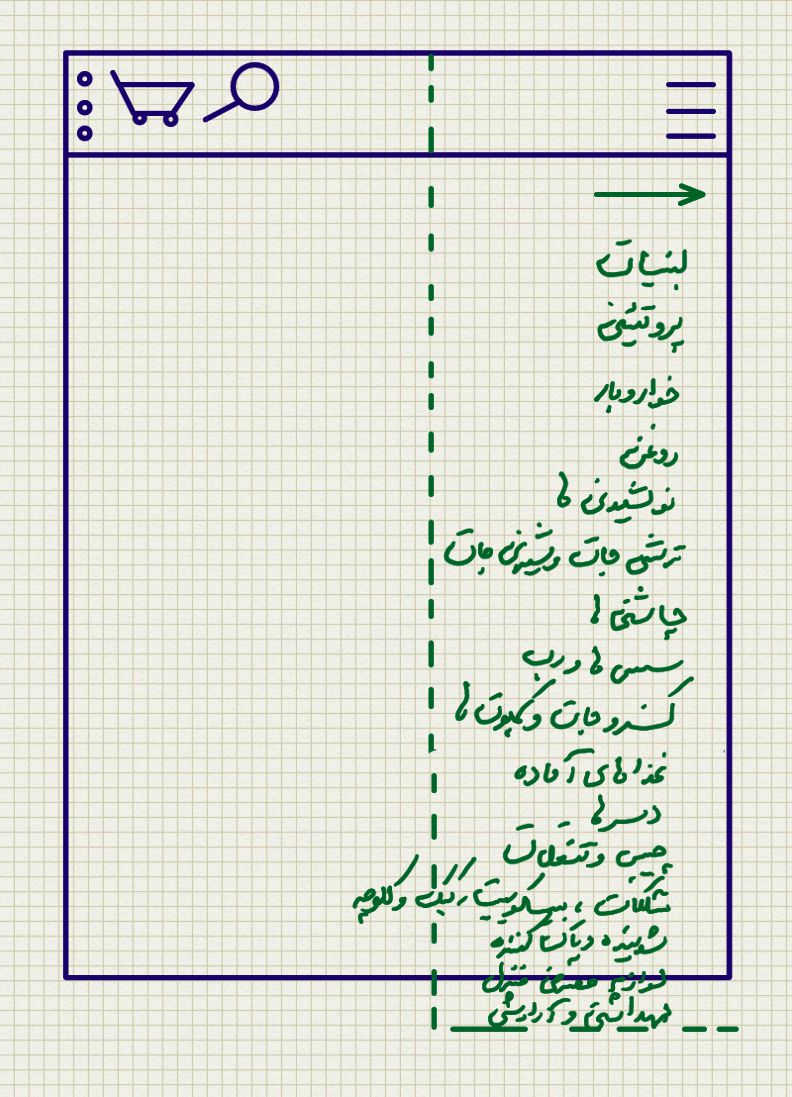 لبنیات
پروتئینی
خواروبار
روغن
نوشیدنی ها
ترشی جات و شیرینی جات
چاشنی ها
سس ها و رب
کنسرو جات و کمپوت ها
غذاهای آماده
دسرها
چیپس و تنقلات
شکلات ، بیسکوییت ، کیک و کلوچه
شوینده و پاک کننده
لوازم مصرفی منزل
بهداشتی و آرایشی